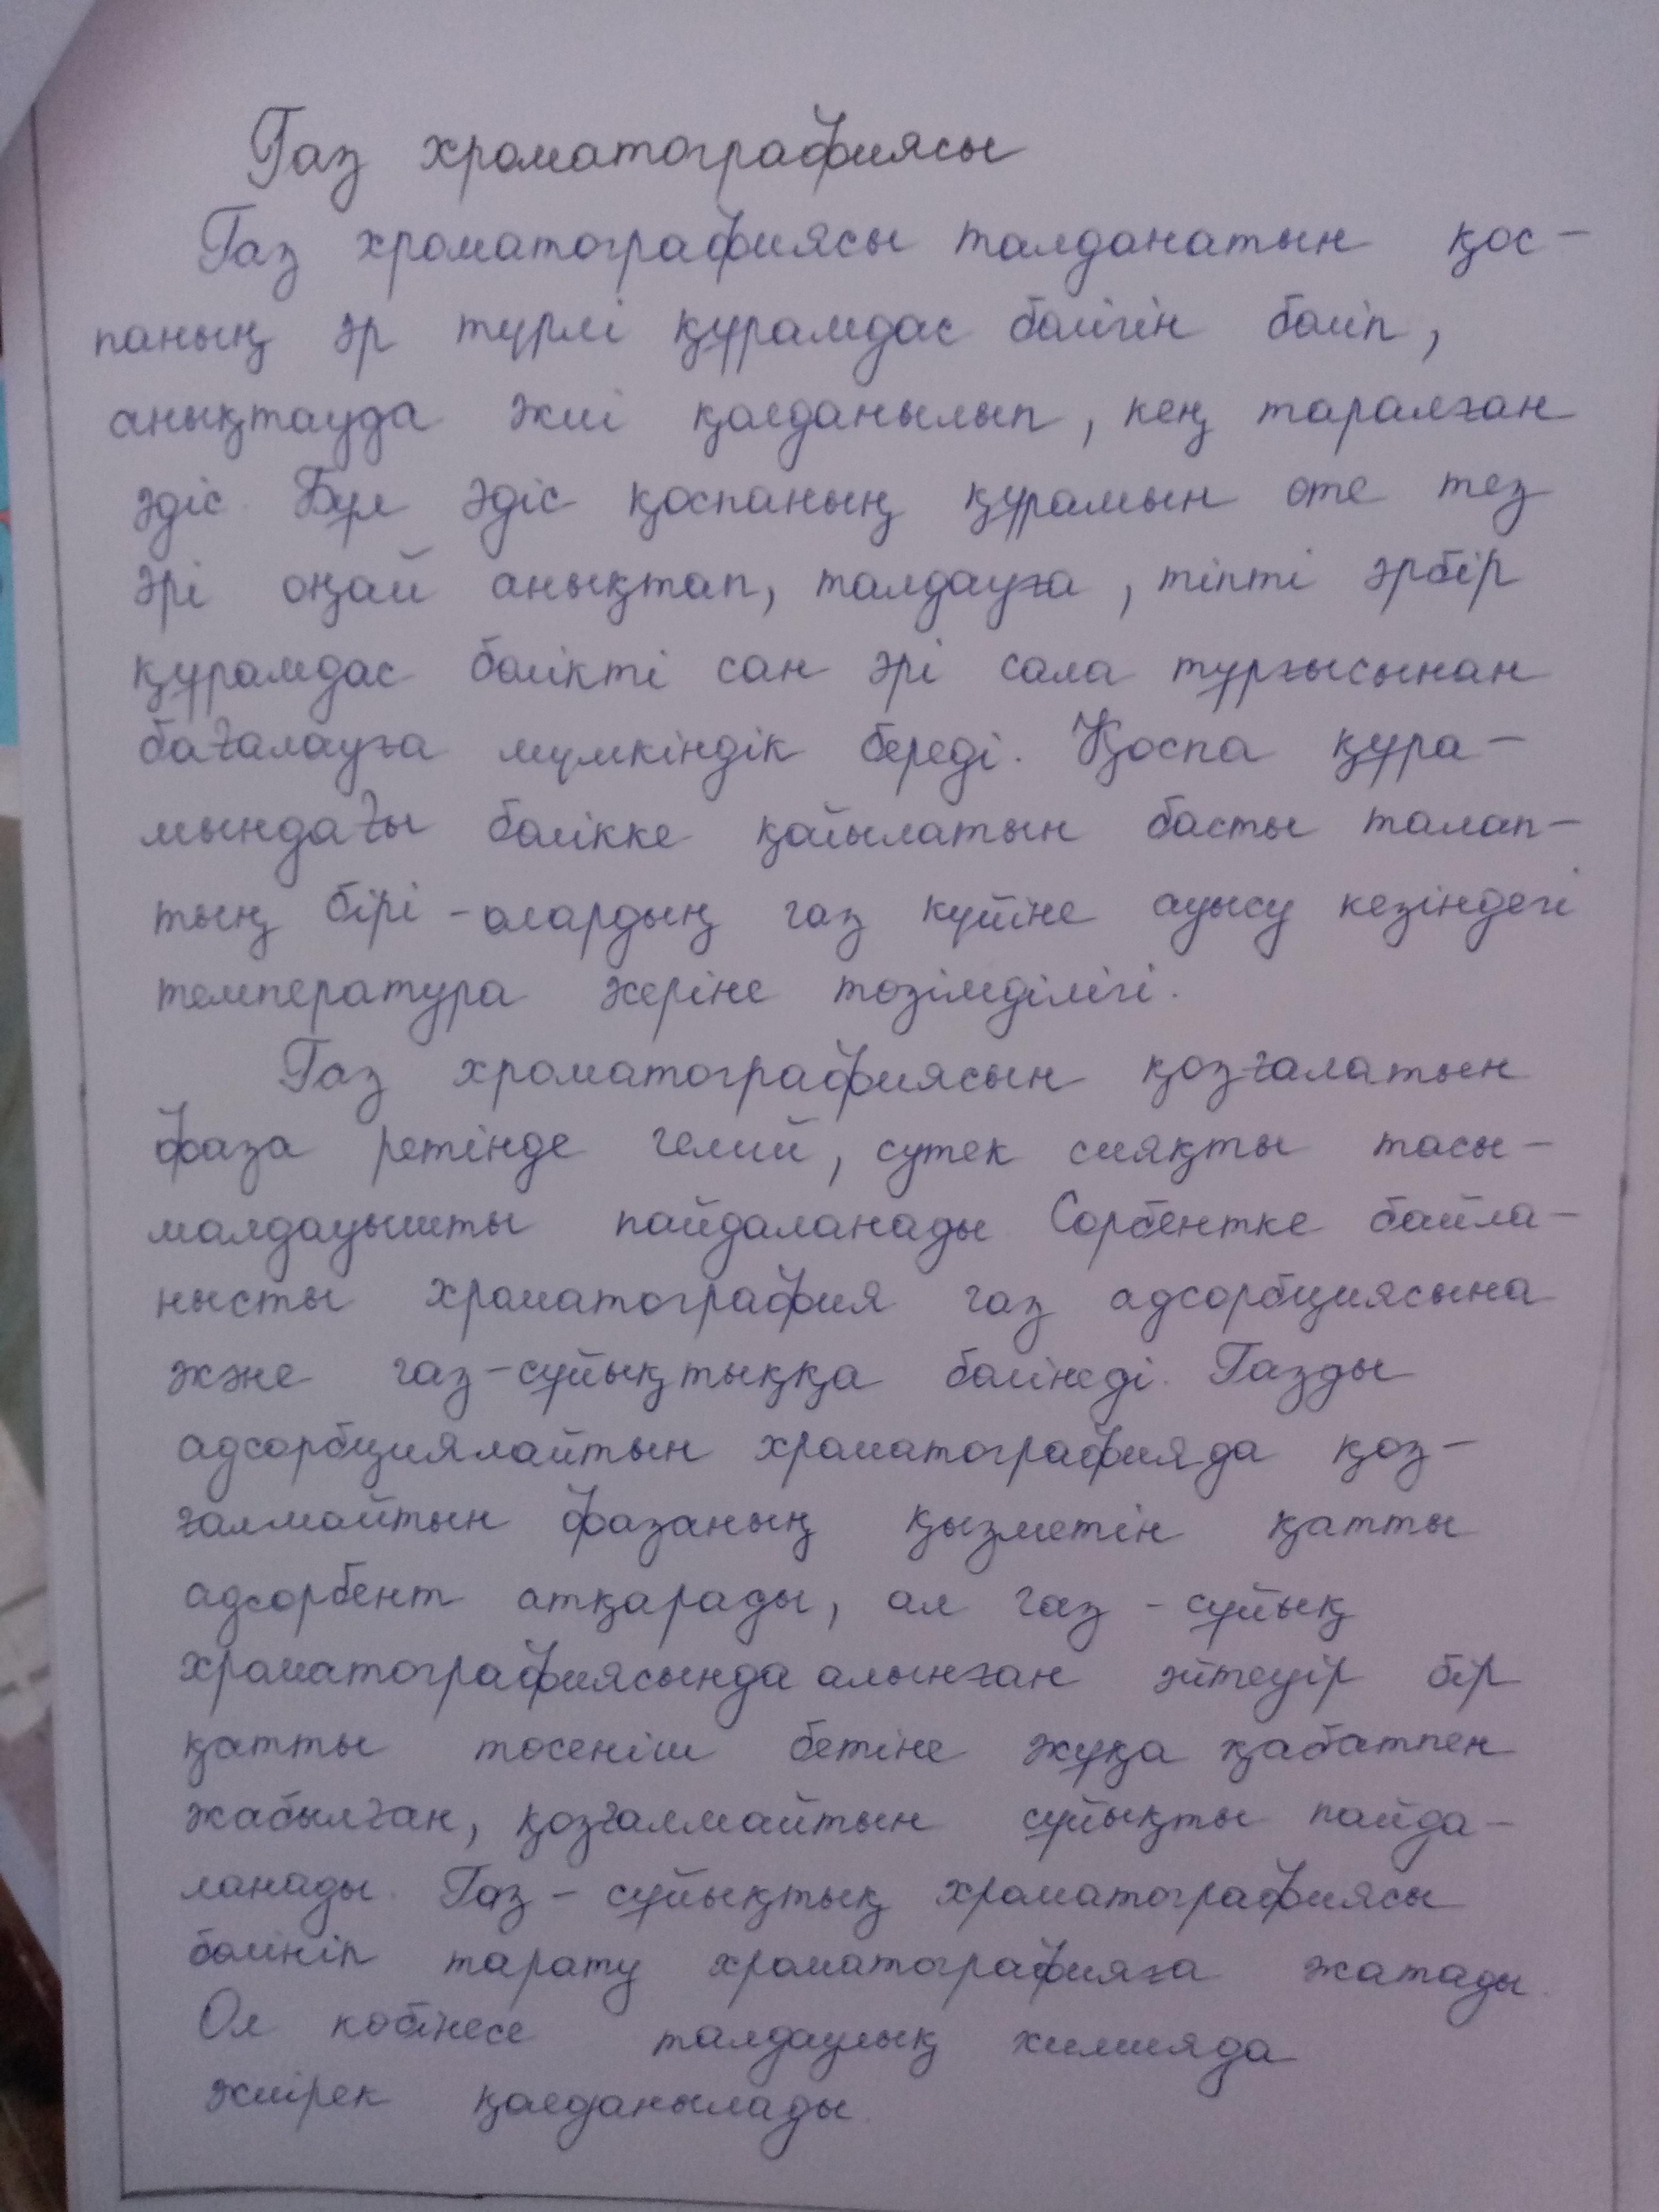 Газ хроматографиясы
Газ хроматографиясы талданатын қос-
паның әр түрлі құрамдас бөлігін бөліп,
анықтауда жиі қолданылып, кең таралған
әдіс. Бұл әдіс қоспаның құрамын өте тез
әрі оңай анықтап, талдауға, тіпті әрбір
құрамдас бөлікті сан әрі сапа тұрғысынан
бағалауға мүмкіндік береді. Қоспа құра-
мындағы бөлікке қойылатын басты талап-
тың бірі - олардың газ күйіне ауысу кезіндегі
температура әсеріне төзімділігі.
Газ хроматографиясын қозғалатын
фаза ретінде гелий, сутек сияқты тасы-
малдауышты пайдаланады Сорбентке байла-
нысты хроматография газ адсорбциясына
және газ-сұйықтыққа бөлінеді. Газды
адсорбциялайтын хроматографияда қоз-
ғалмайтын фазаның қызметін қатты
адсорбент атқарады, ал газ - сұйық
хроматографиясында алынған әйтеуір бір
қатты төсеніш бетіне жұқа қабатпен
жабылған, қозғалмайтын сұйықты пайда-
ланады. Газ - сұйықтық хроматографиясы
бөлініп тарату хроматографияға жатады.
Ол көбінесе талдаулық химияда
жиірек қолданылады.